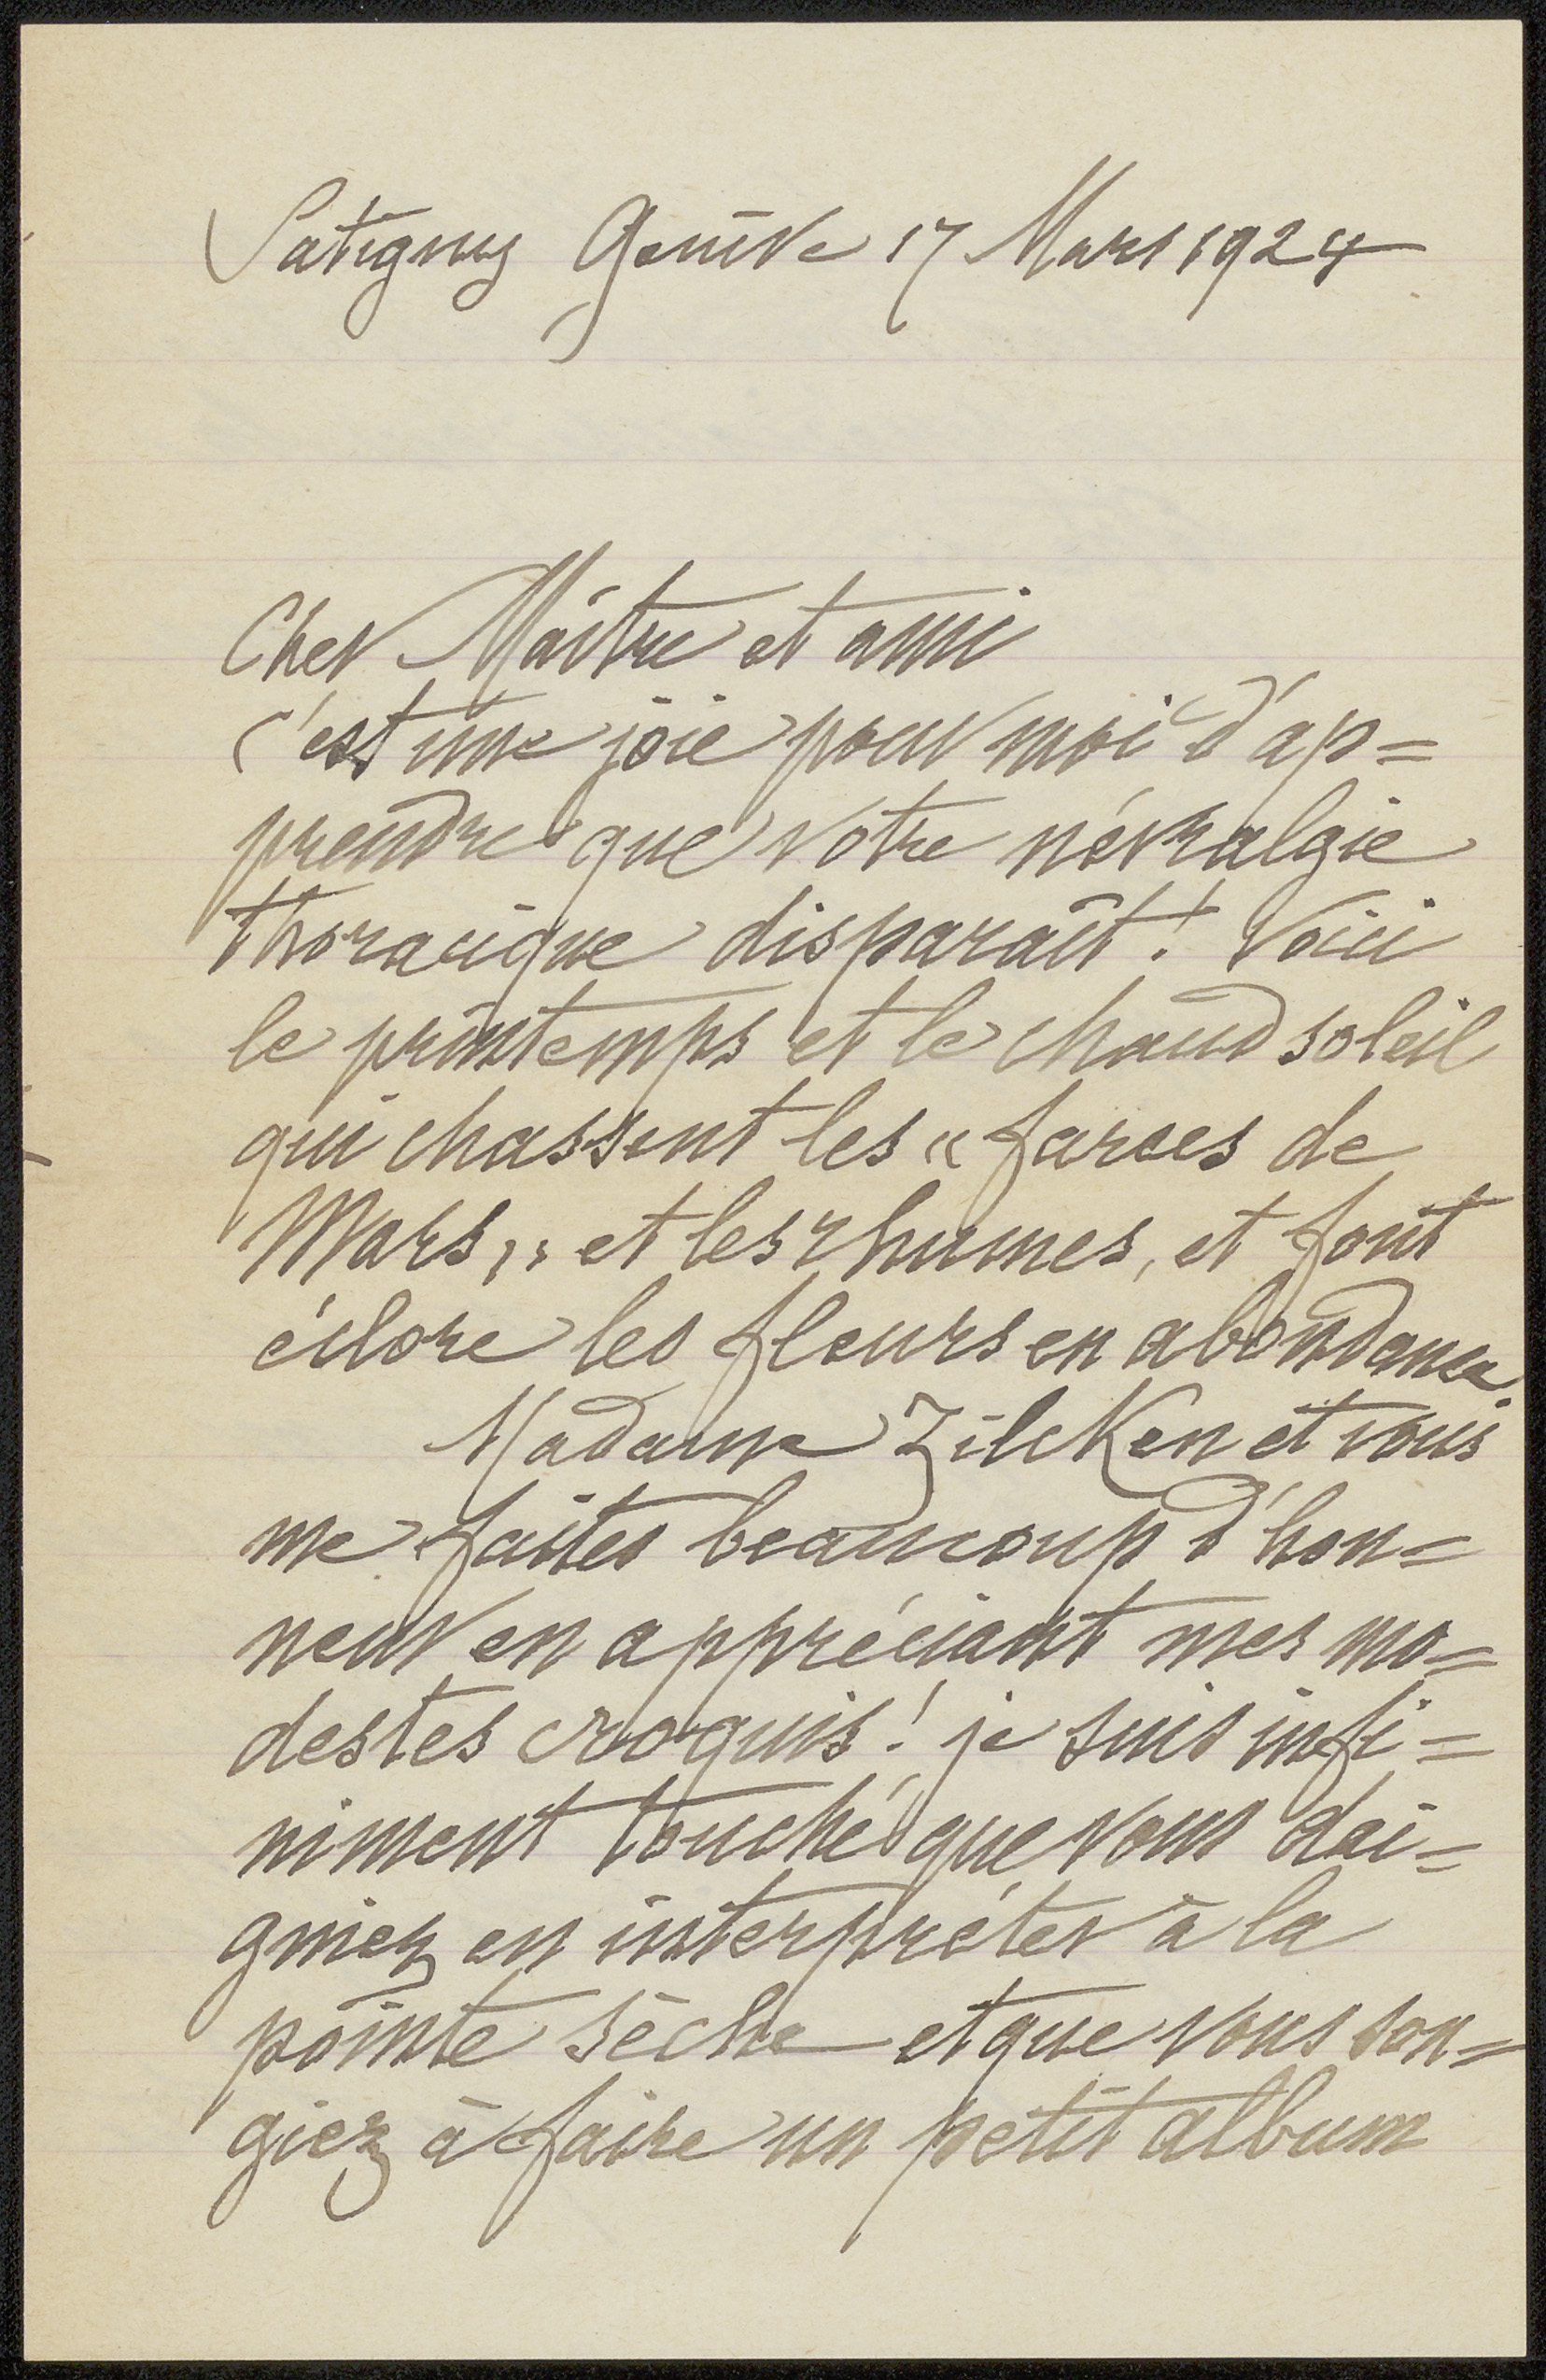 Satigny Genève 17 Mars 1924
Cher Maître et ami
c'est une joie pour moi d'ap=
prendre que votre névralgie
thoracique disparaît! Voici
le printemps et le chaud soleil
qui chassent les « farces de
Mars » et les rhumes, et font
éclore les fleurs en abondance.
Madame Zilcken et vous
me faites beaucoup d'hon=
neur en appréciant mes mo=
destes croquis! je suis infi=
niment touché que vous dai=
gniez en interpréter à la
pointe sèche et que vous son=
giez à faire un petit album